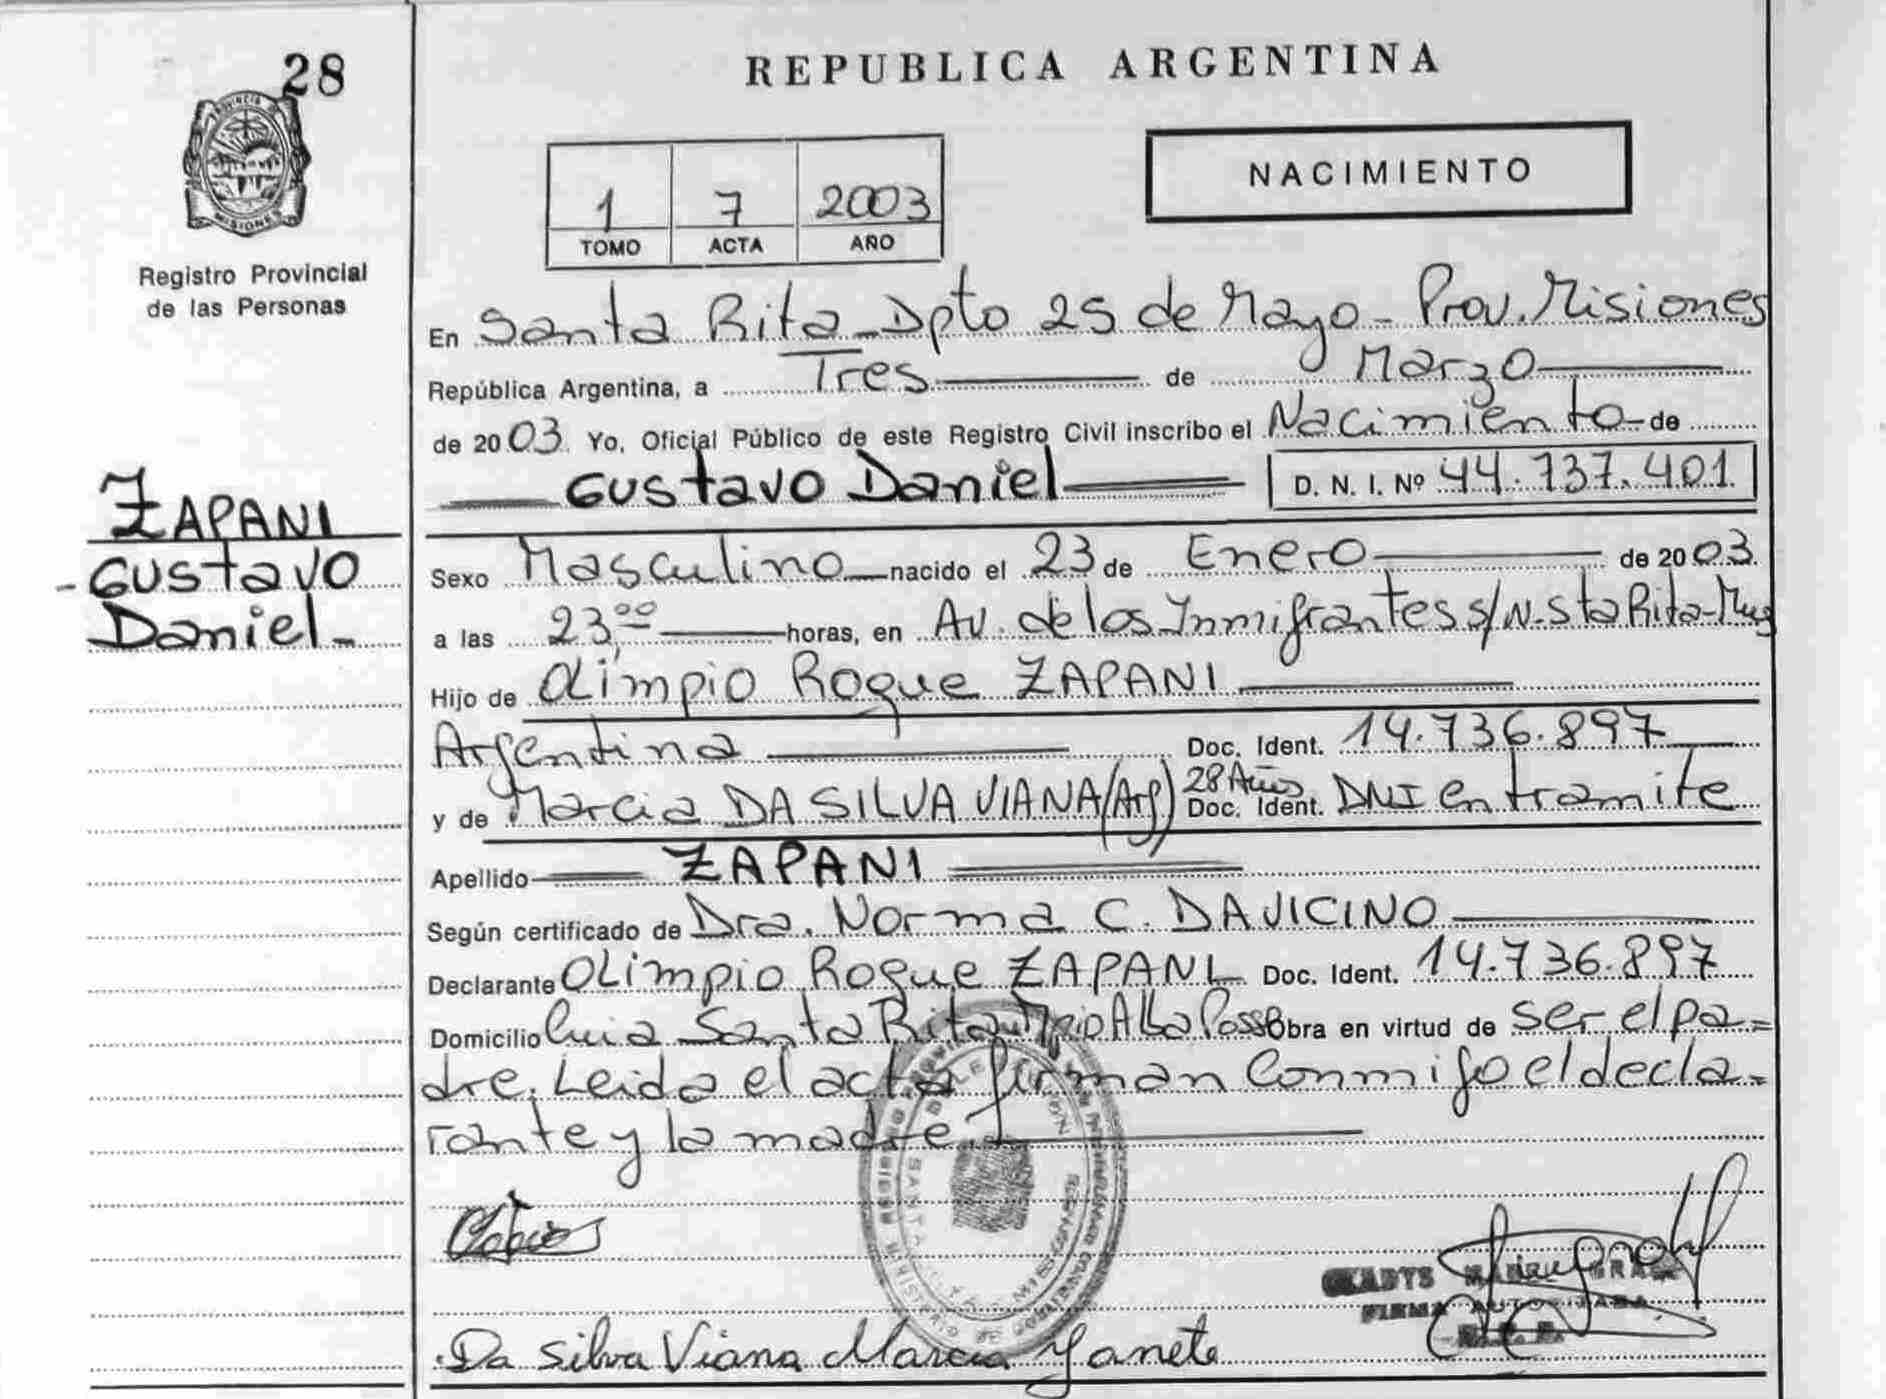 28
PROVINCIA DE
MISIONES
Registro Provincial
de las Personas
ZAPANI
- Gustavo
Daniel -
REPUBLICA ARGENTINA
1 7 2003
TOMO ACTA AÑO
NACIMIENTO
En Santa Rita - Dpto 25 de Mayo - Prov. Misiones
República Argentina, a Tres de Marzo
de 2003. Yo, Oficial Público de este Registro Civil inscribo el Nacimiento de
Gustavo Daniel D. N. I. Nº 44.737.401
Sexo Masculino nacido el 23 de Enero de 2003.
a las 23,00 horas, en Av. de los Inmigrantes s/N - Sta Rita -
Hijo de Olimpio Roque ZAPANI
Argentina Doc. Ident. 14.736.897
y de Marcia DA SILVA VIANA (Arg) 28 Años Doc. Ident. DNI en tramite
Apellido ZAPANI
Según certificado de Dra. Norma C. DAVICINO
Declarante Olimpio Roque ZAPANI Doc. Ident. 14.736.897
Domicilio Santa Rita Mpio Alba Posse Obra en virtud de ser el pa=
dre. Leida el acta firman Conmigo el decla=
rante y la madre.
GLADYS
FIRMA AUTORIZADA
Da Silva Viana Marcia Yanete